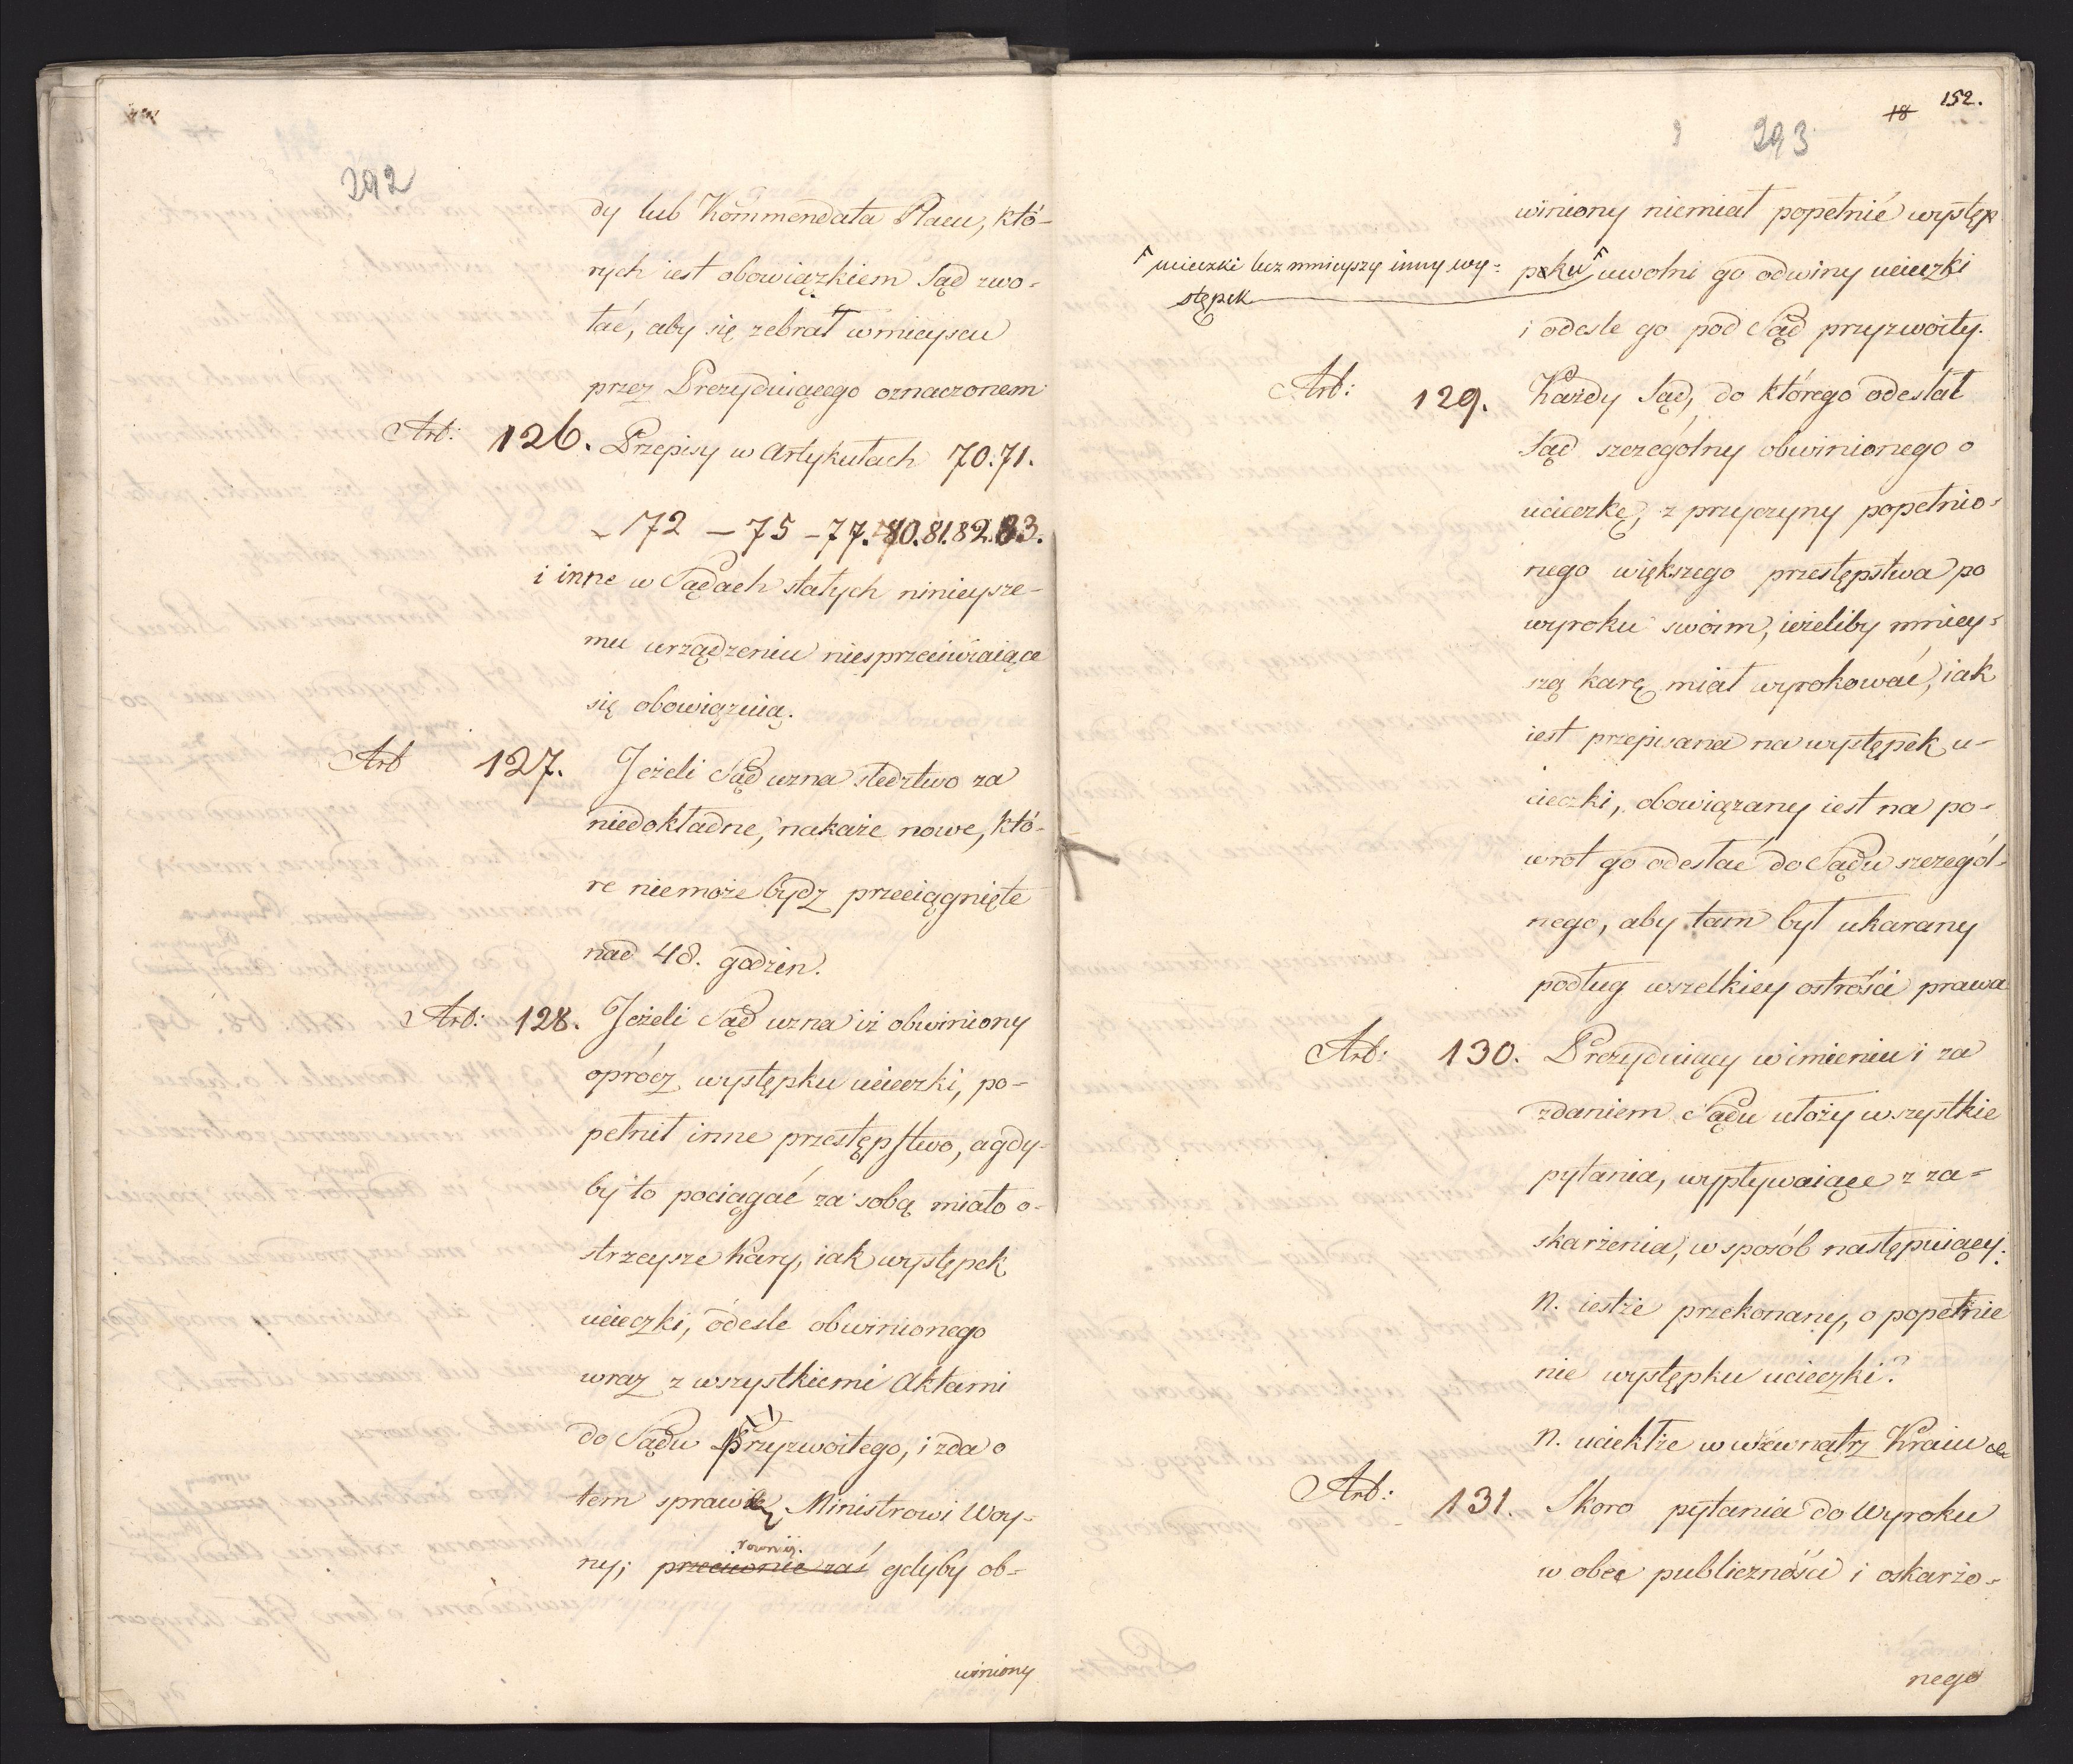 292
dy lub Kommendata Placu, któ-
rych iest obowiązkiem Sąd zwo-
łać, aby się zebrał w mieyscu
przez Prezyduiącego oznaczonem
Art: 126. Przepisy w Artykułach 70. 71.
- 72 - 75 - 77. 80. 81. 82. 83.
i inne w Sądach stałych ninieysze-
mu urządzeniu niesprzeciwiaiące
się obowiązuią.
Art 127. Jeżeli Sąd uzna sledztwo za
niedokładne, nakaże nowe, któ-
re niemoże bydz przeciągnięte
nad 48. godzin.
Art: 128. Jeżeli Sąd uzna iż obwiniony
oprócz występku ucieczki, po-
pełnił inne przestępstwo, a gdy-
by to pociągać za sobą miało o-
strzeysze kary, iak występek
ucieczki, odesle obwinionego
wraz z wszystkiemi Aktami
do Sądu Przyzwoitego, i zda o
tem sprawę Ministrowi Woy-
równiż.
ny; przeciwnie zaś gdyby ob-
winiony
18 152.
293
winiony niemiał popełnić występ
ucieczki lecz mnieyszy inny wy-
stępek
pku uwolni go od winy ucieczki
i odesle go pod Sąd przyzwoity.
Art: 129. Każdy Sąd, do którego odesłał
Sąd szczególny obwinionego o
ucieczkę, z przyczyny popełnio-
nego większego przestępstwa po
wyroku swoim, ieżeliby mniey-
szą karę miał wyrokować, iak
iest przepisana na występek u-
cieczki, obowiązany iest na po-
wrót go odesłać do Sądu szczegól-
nego, aby tam był ukarany
podług wszelkiey ostrości prawa
Art: 130. Prezyduiący w imieniu i za
zdaniem Sądu ułoży wszystkie
pytania, wypływaiące z za-
skarżenia, w sposób następuiący.
N. iestże przekonany, o popełnie
nie występku ucieczki?
N. uciekłże w wewnątrz Kraiu
Art: 131. Skoro pytania do Wyroku
w obec publiczności i oskarżo-
nego